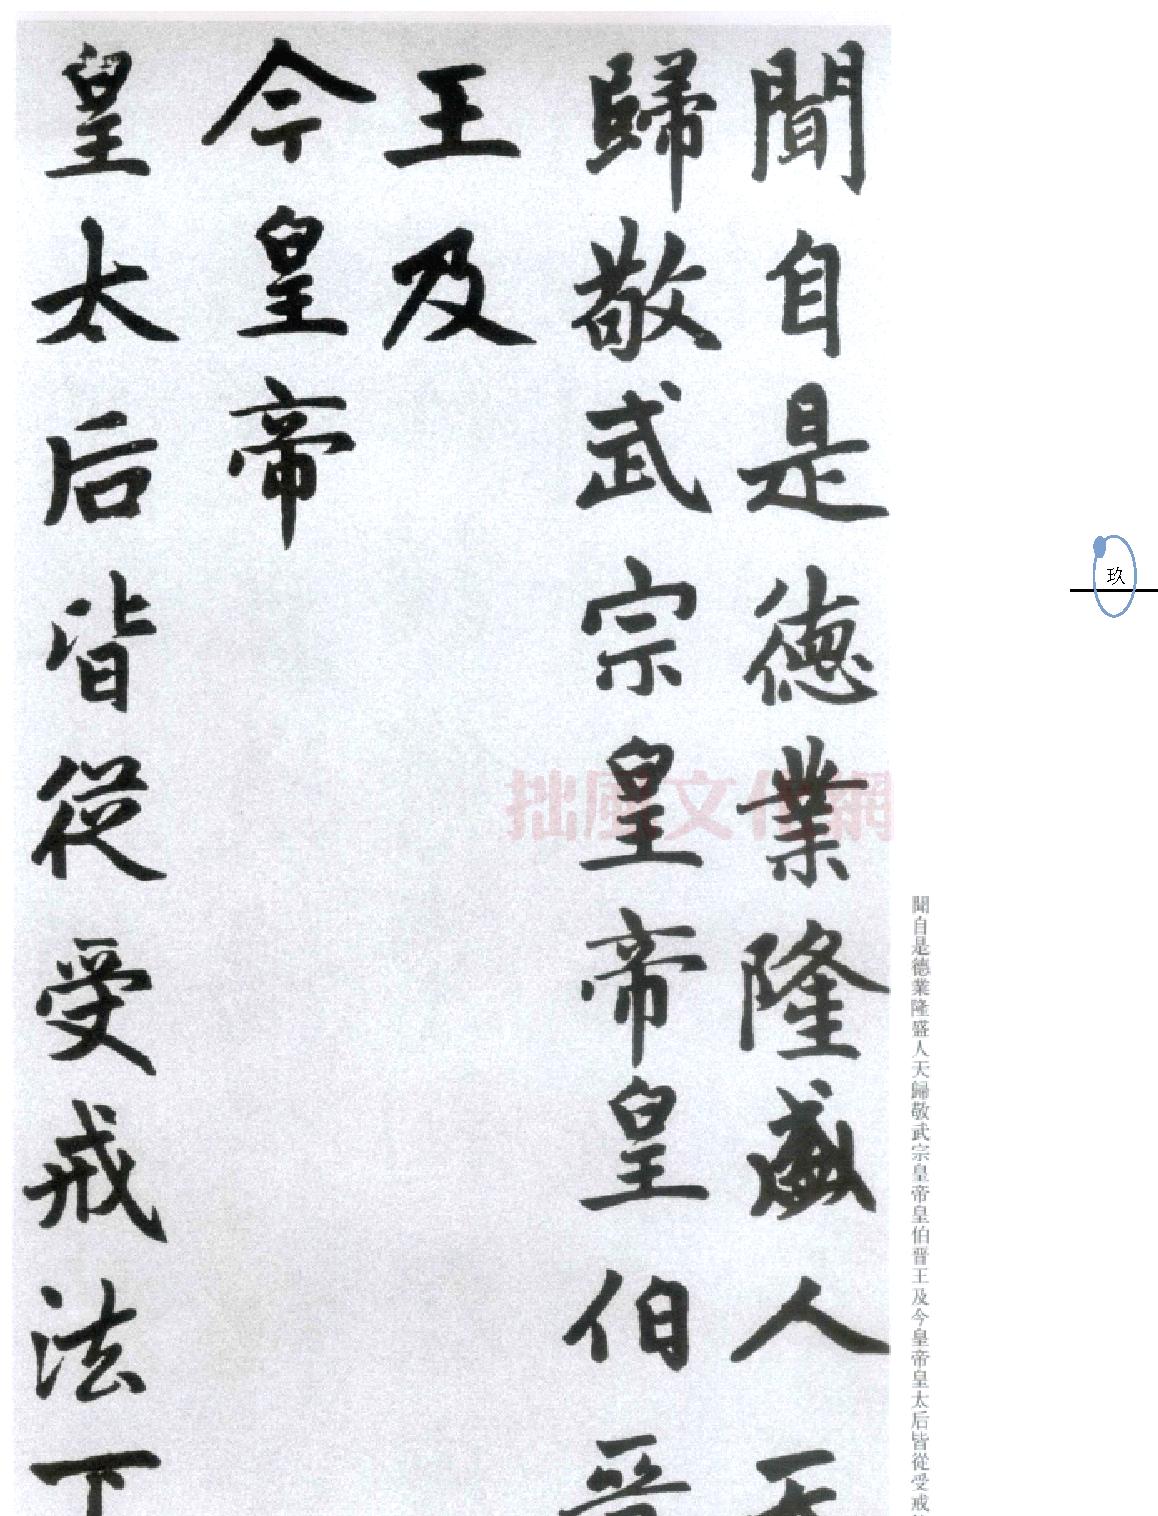 聞自是德業隆盛人天
歸敬武宗皇帝皇伯晋
王及
今皇帝
皇太后皆從受戒法下
拙風文化網
玖
聞自是德業隆盛人天歸敬武宗皇帝皇伯晋王及今皇帝皇太后皆從受戒